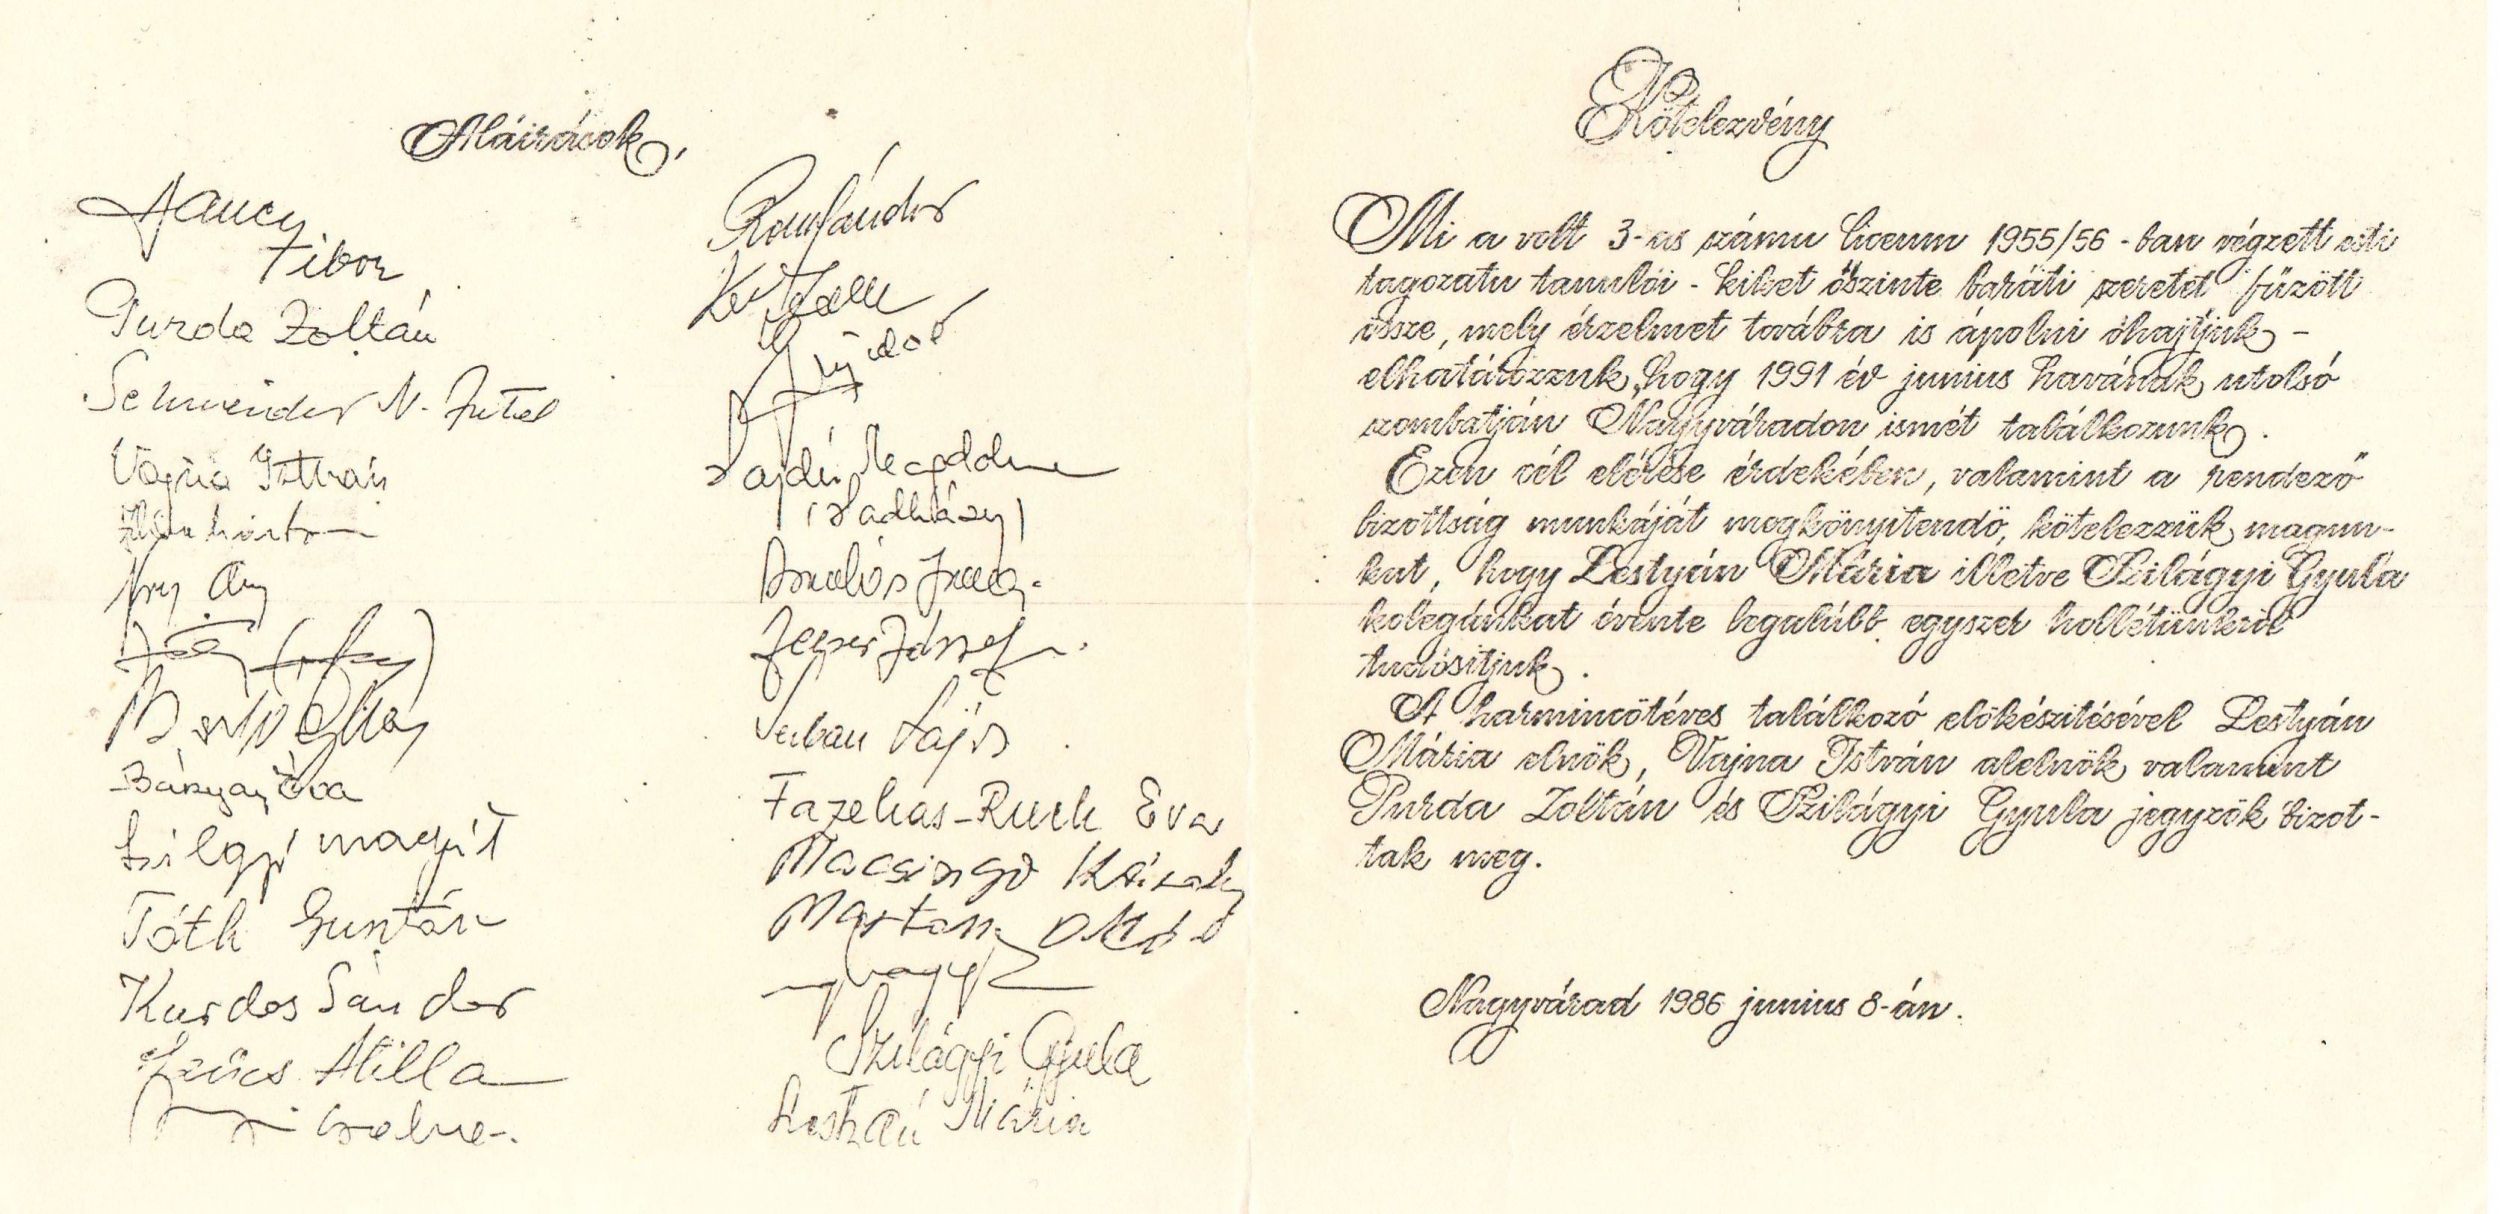 Aláirások
Tibor
Purda Zoltán
Schneider N.
Vajna István
Bányai Éva
Szilágyi Margit
Tóth Gusztáv
Kurdos Sándor
Szücs Attila
Sándor
Hajdú Magdolna
József
Lajos
Fazekas-Ruck Éva
Szilágyi Gyula
Lestyán Mária
Kötelezvény
Mi a volt 3-as számu liceum 1955/56-ban végzett esti
tagozatu tanulói - kiket őszinte baráti szeretet fűzött
össze, mely érzelmet továbra is ápolni óhajtjuk -
elhatározzuk, hogy 1991 év junius havának utolsó
szombatján Nagyváradon ismét találkozunk.
Ezen cél elérése érdekében, valamint a rendező
bizottság munkáját megkönyitendő, kötelezzük magun-
kat, hogy Lestyán Mária illetve Szilágyi Gyula
kolegánkat évente legalább egyszer hollétünkről
tudósitjuk.
A harmincötéves találkozó előkészitésével Lestyán
Mária elnök, Vajna István alelnök valamint
Purda Zoltán és Szilágyi Gyula jegyzők bizot-
tak meg.
Nagyvárad 1986 junius 8-án.